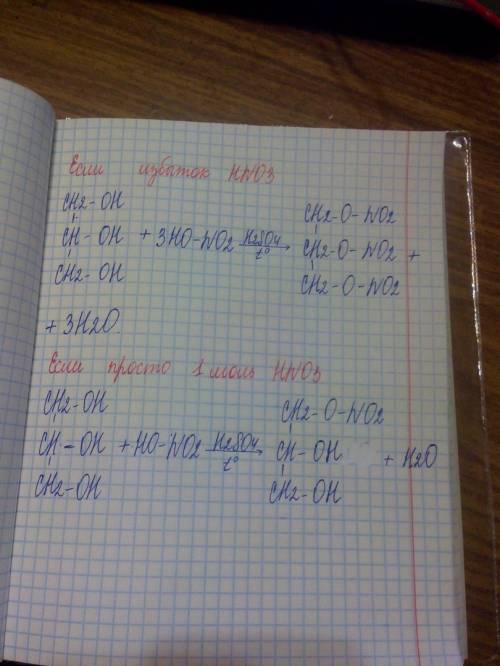 Если избыток HNO3
CH2-OH CH2-O-NO2
CH-OH + 3HO-NO2 H2SO4 t° → CH2-O-NO2 +
CH2-OH CH2-O-NO2
+ 3H2O.
Если просто 1 моль HNO3
CH2-OH CH2-O-NO2
CH-OH + HO-NO2 H2SO4 t° → CH-OH + H2O
CH2-OH CH2-OH